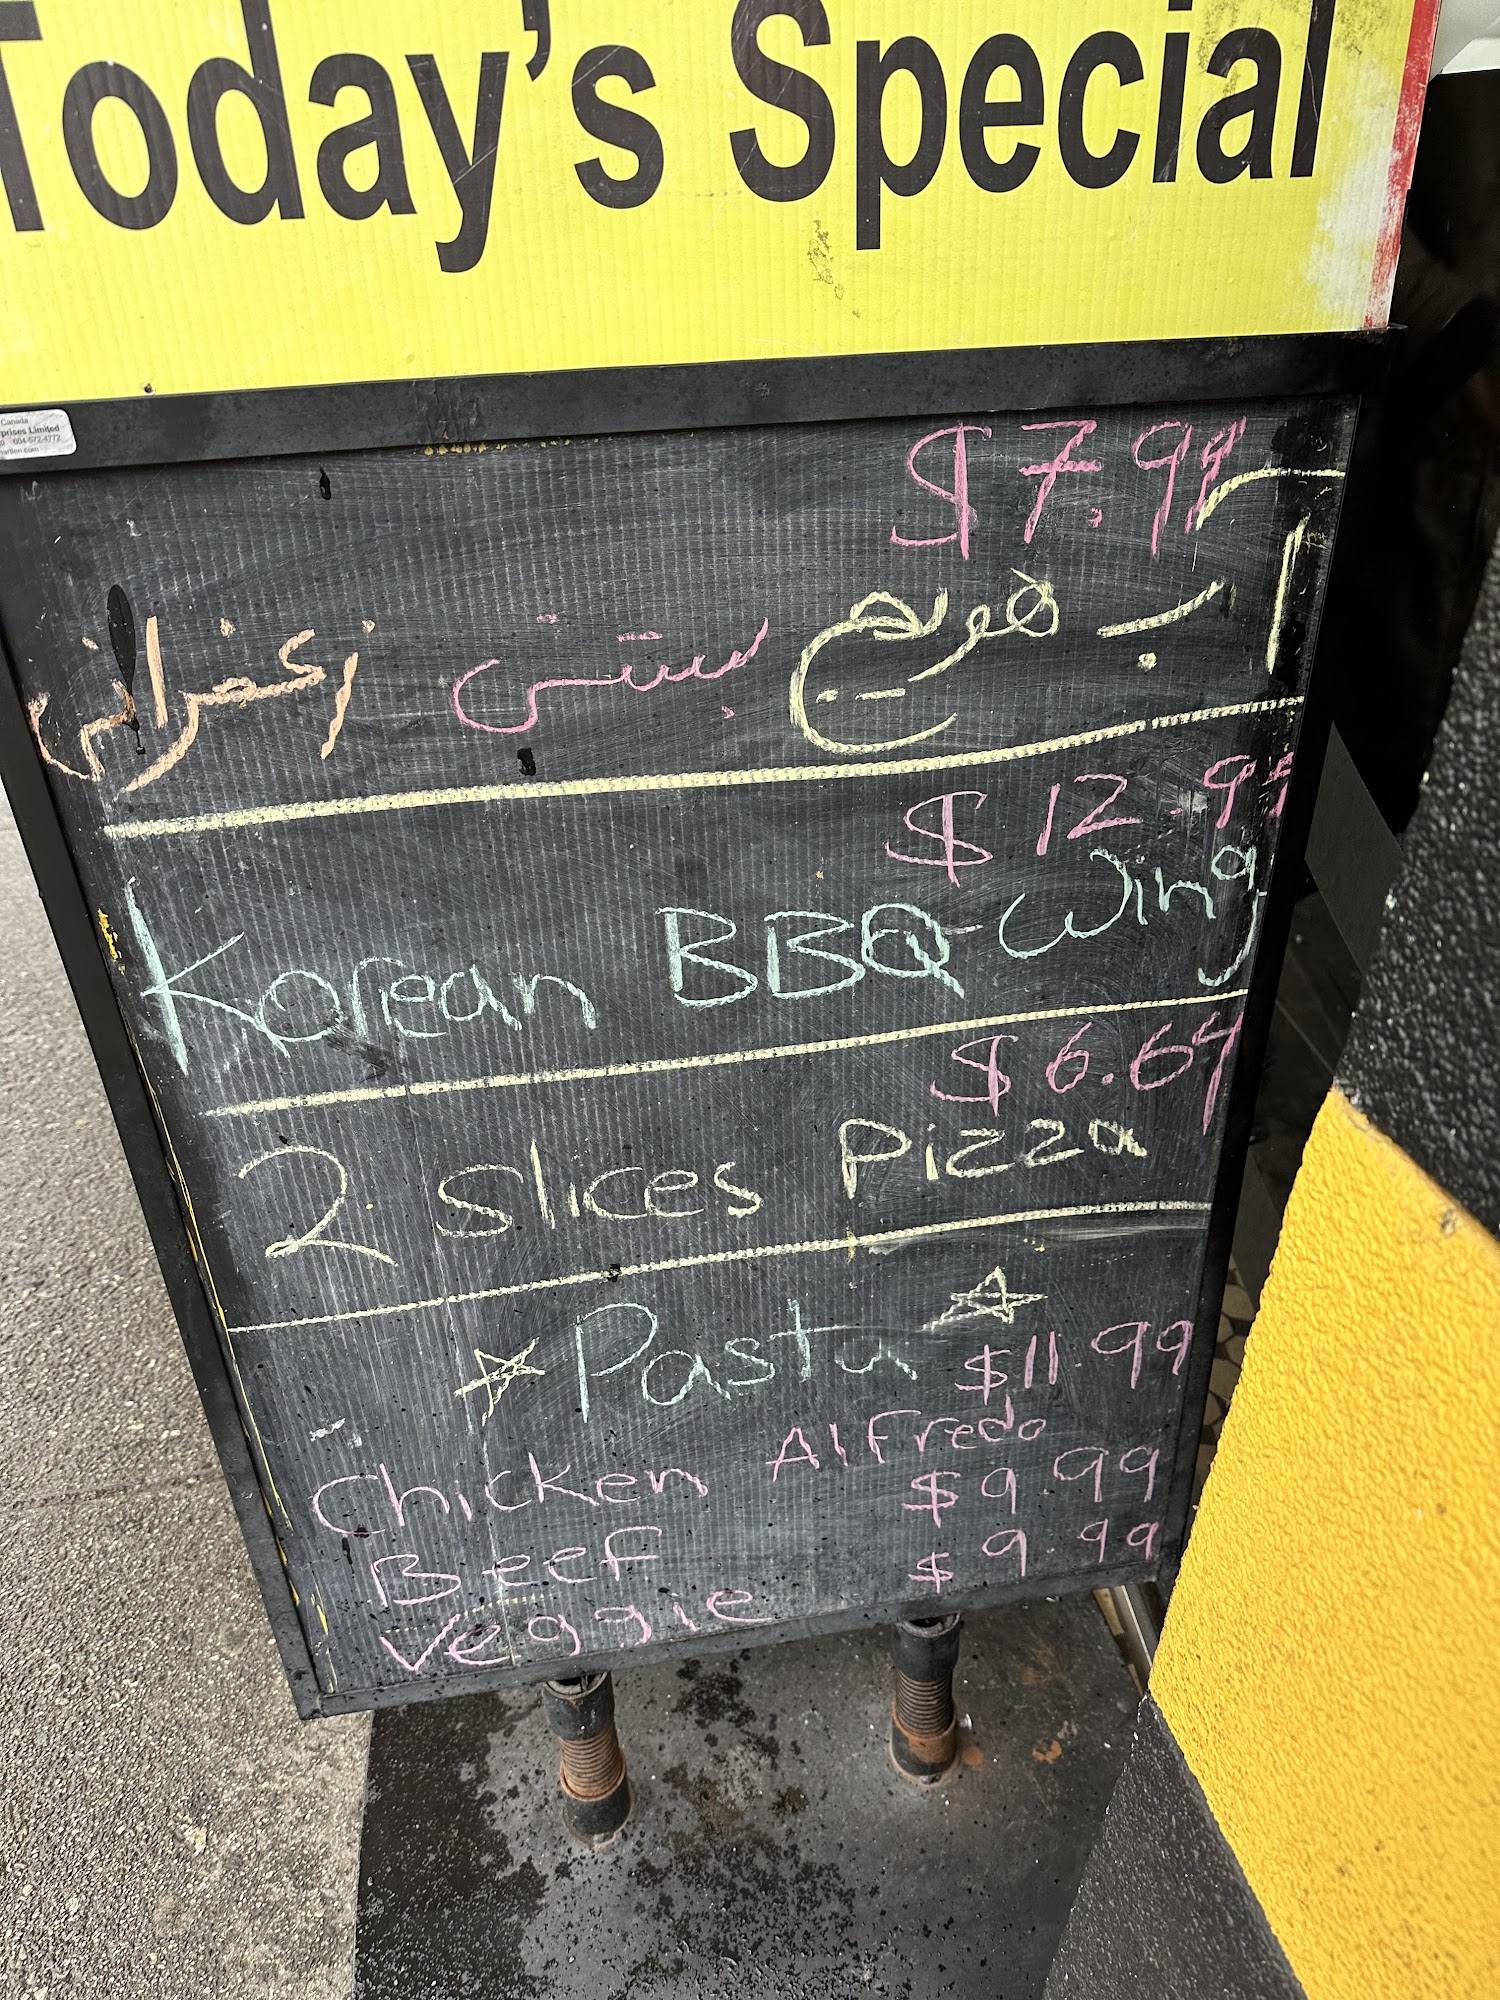 Today's Special
Canada
prises Limited
604-572-4772
$7.99
آب هویج بستنی زعفرانی
$12.99
Korean BBQ Wing
$6.69
2 slices Pizza
Pasta
$11.99
Chicken Alfredo
$9.99
Beef
$9.99
Veggie